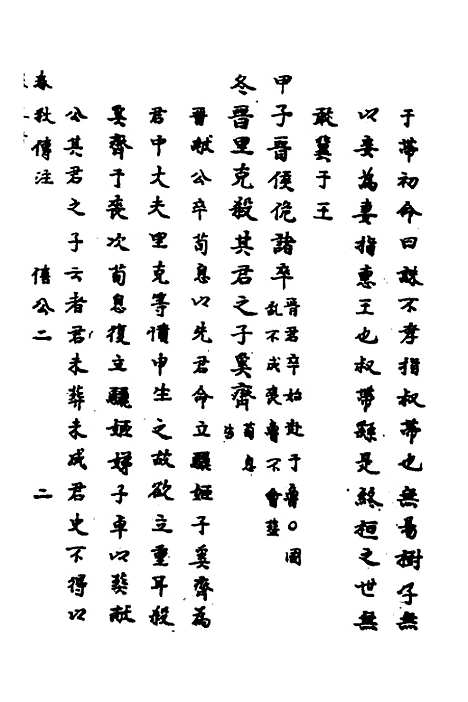 于帶初命曰誅不孝指叔帶也無易樹子無
以妾為妻指惠王也叔帶繇是終桓之世無
敢冀于王
甲子晉侯佹諸卒晉君卒始赴于魯○國亂不成喪魯不會葬
冬晉里克殺其君之子奚齊荀息
晉獻公卒荀息以先君命立驪姬子奚齊為
君中大夫里克等憤申生之故欲立重耳殺
奚齊于喪次荀息復立驪姬娣子卓以葬獻
公其君之子云者君未葬未成君史不得以
春秋傳注 僖公二 二